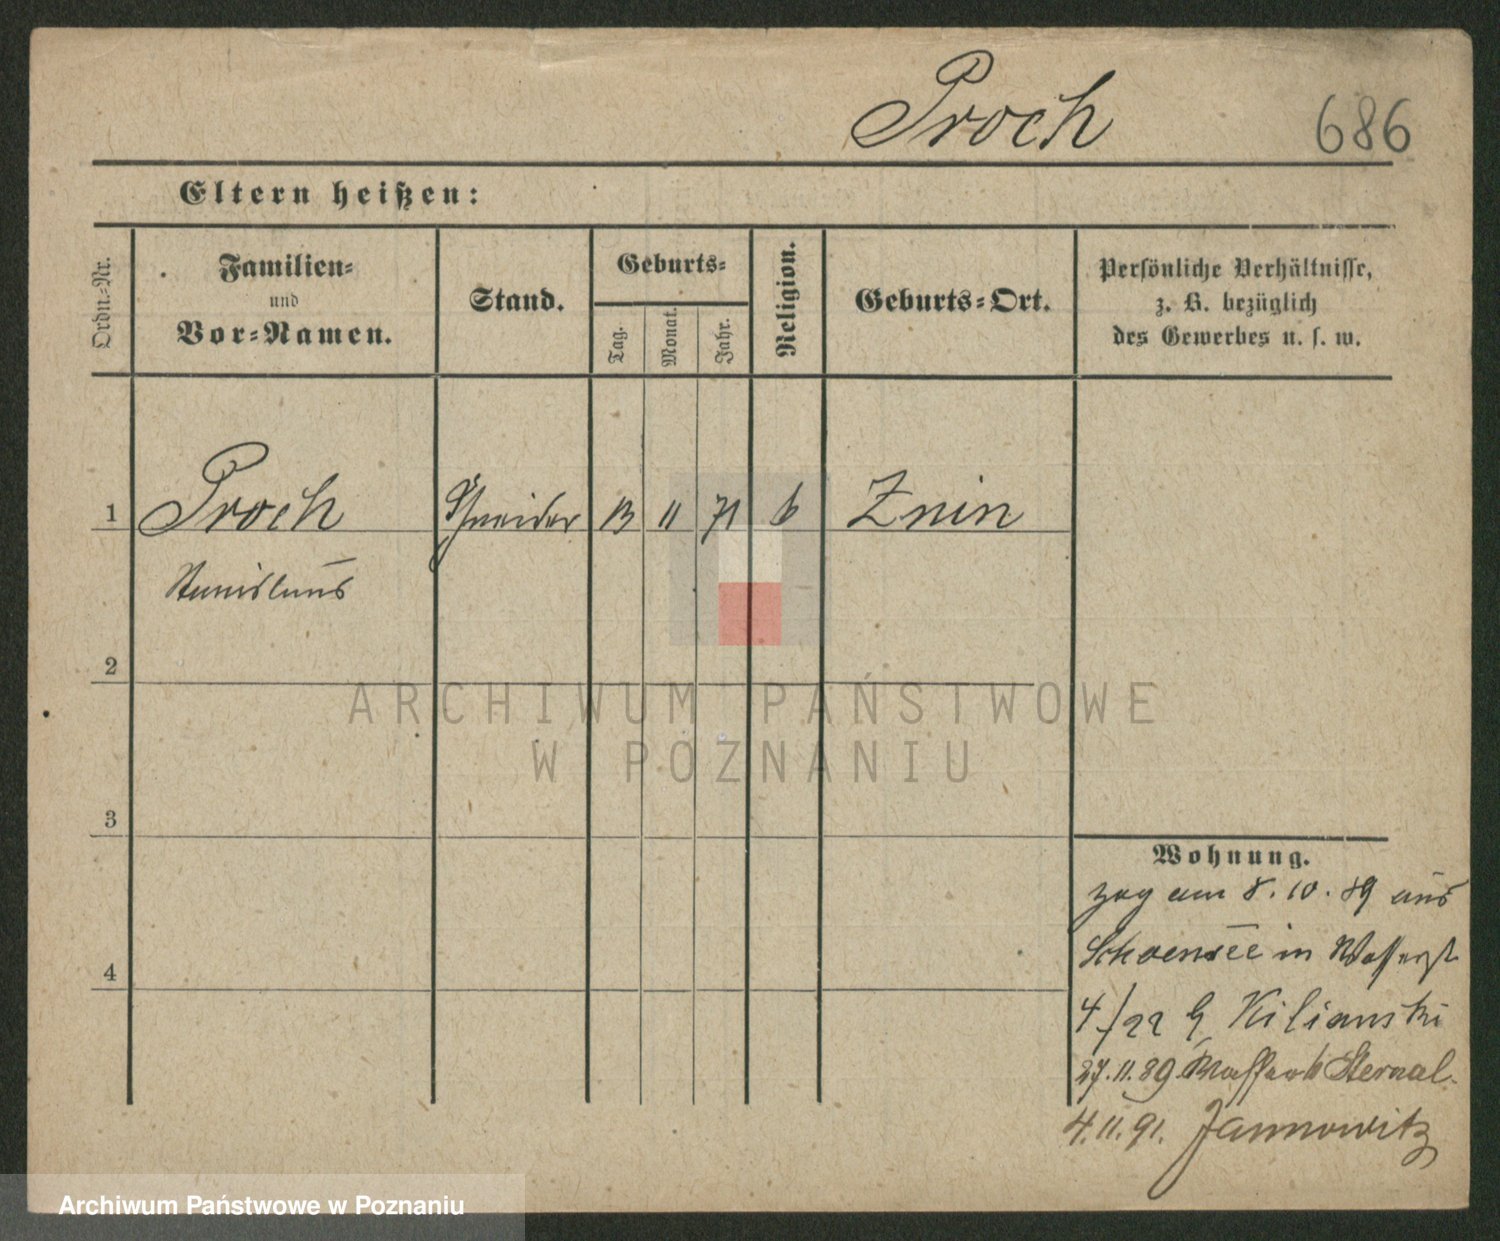 Proch 686
Eltern heißen:
Ordn.-Nr.
Familien-
und
Vor-Namen.
Stand.
Geburts-
Tag.
Monat.
Jahr.
Religion.
Geburts-Ort.
Persönliche Verhältnisse,
z. B. bezüglich
des Gewerbes u. s. w.
1 Proch Schneider 13 11 71 Znin
Stanislaus
2
3
4
ARCHIWUM PAŃSTWOWE
W POZNANIU
Wohnung.
zog am 8.10.89 aus
Schoensee in Wasserst
4/22 Kilianski
27.11.89. Sternal
4.11.91. Jannowitz
Archiwum Państwowe w Poznaniu